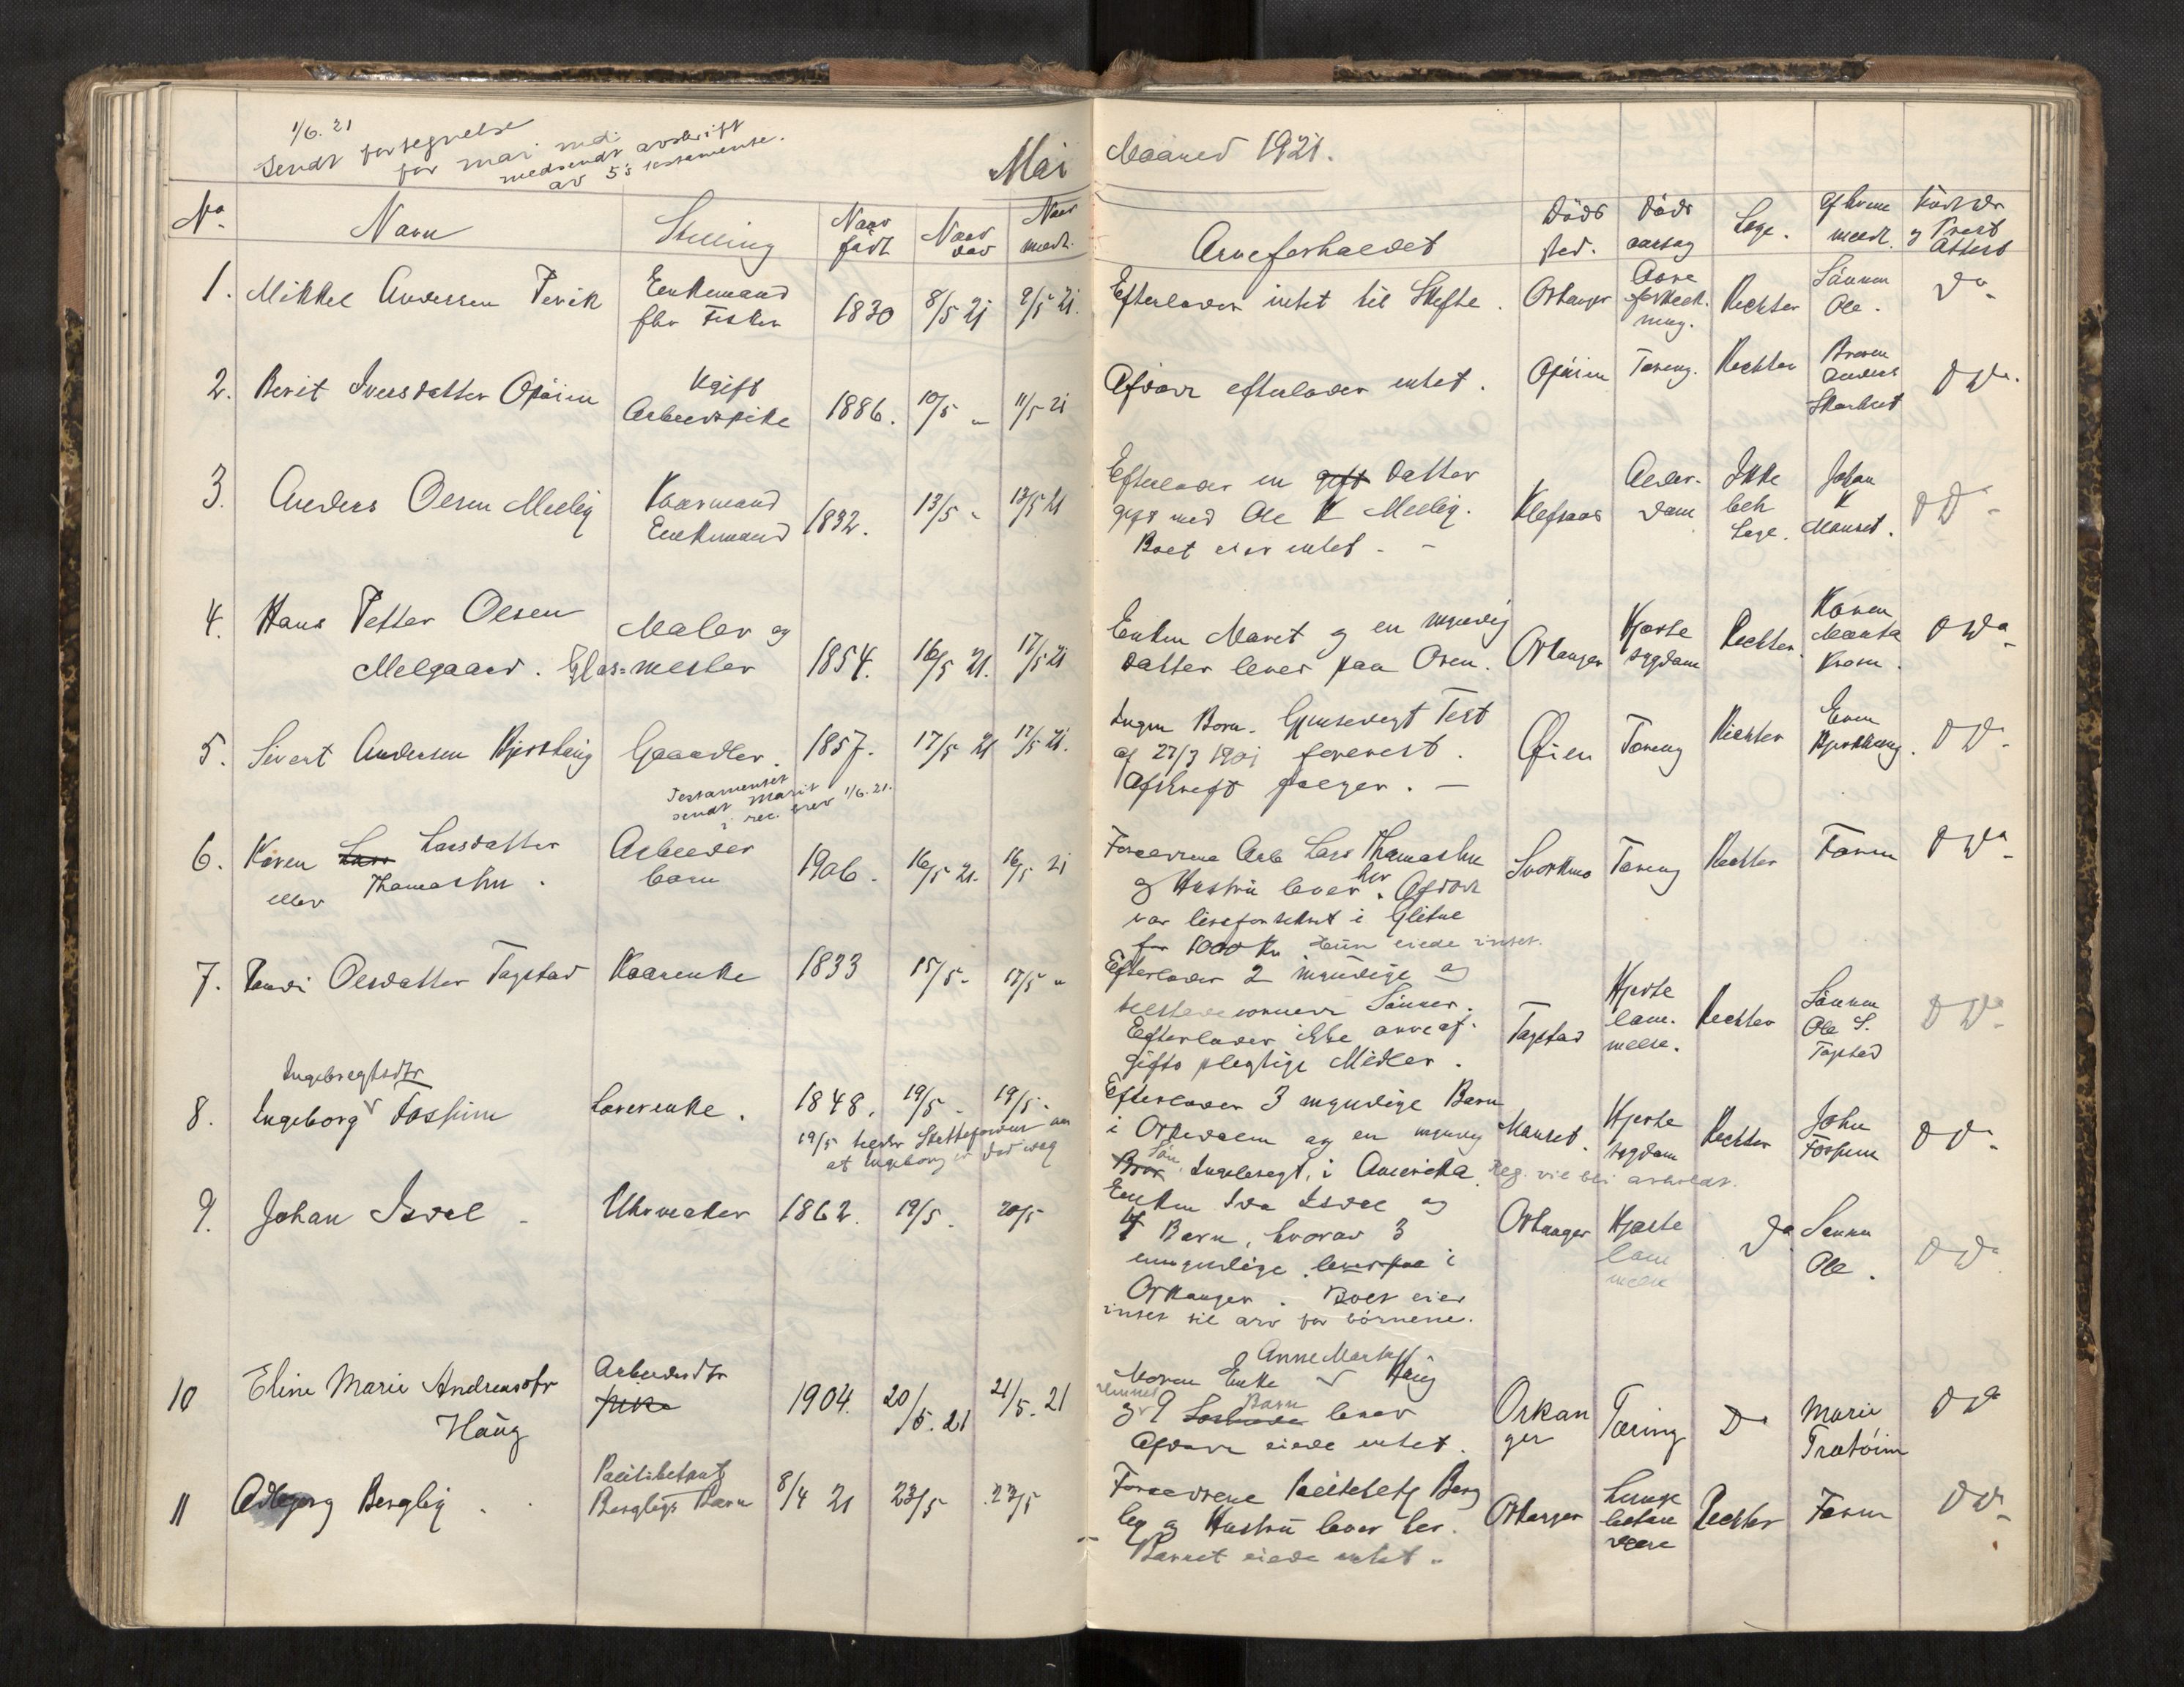 1/6. 21
Sendt fortegnelse
for mai md:
medsendt avskrift
av 5's testamente.
Mai Maaned 1921.
No. Navn Stilling Naar født Naar død Naar meldt. Arveforholdet Døds sted. Døds aarsag Læge. Af hvem meldt. og Prest Attest
1. Mikkel Andersen Pevik Enkemand fhv Fisker 1830 8/5 21 9/5 21.
Efterlader intet til Skifte. Orkanger Rechter Sønnen Ole. Da
2. Berit Iversdatter Opøien Ugift Arbeiderpike 1886. 10/5 " 11/5 21
Afdøde efterlader intet. Opøien Tæring. Rechter Broren Anders Da.
3. Anders Olsen Melby Kaarmand Enkemand 1832. 13/5 " 13/5 21
Efterlader en gift Datter
gift med Ole K Melby.
Boet eier intet. -
Alder-
dom Ikke
beh
Læge. Johan
K
Monset.
4. Hans Petter Olsen
Melgaard. Maler og
Glas-mester 1854. 16/5 21. 17/5 21
Enken Maret og en myndig
Datter lever paa Oren. Orkanger Hjerte
sygdom Rechter. Konen
5. Sivert Andersen Gaardbr. 1857. 17/5 21 17/5 21.
Testamentet
sendt
i rec. brev 1/6. 21.
Ingen Børn. Gjensidigt Test
af 27/3 1901 forevist.
Afskrift følger. -
Øien Tæring Rechter Even
6. Karen Lars Larsdatter
eller Thomashu. Arbeider
barn 1906. 16/5 21. 16/5 21
Forældrene Arb Lars Thomashu
og Hustru lever her. Afdøde
var livsforsikret i Glitne
for 1000 Kr Hun eiede intet.
Svorkmo Tæring Rechter Faren
7. Olsdatter Tapstad Kaarenke 1833 15/5 - 17/5 "
Efterlader 2 myndige og
tilstedeværende Sønner.
Efterlader ikke arveaf-
gifts plegtige Midler.
Tapstad Hjerte
lam-
melse. Rechter Sønnen
Ole S.
Tapstad
Ingebregtsdtr
8. Ingeborg v Fossum Lærerenke. 1848. 19/5 - 19/5 -
19/5
at Ingeborg er død idag
Efterlader 3 myndige Barn
i Orkedalen og en myndig
Søn
Bror Ingebregt, i Amerika. Reg. vil bli avholdt.
Monset. Hjerte
sygdom Rechter John
Fossum
9. Johan Isdal - Uhrmaker 1862. 19/5. 20/5
Enken Ida Isdal og
7 Barn, hvorav 3
umyndige. i
Orkanger. Boet eier
intet til arv for børnene.
Orkanger Hjerte
lam
melse Da Sønnen
Ole.
10 Eline Marie Andreasdtr
Haug Arbeiderdtr
pike 1904. 20/5. 21 21/5. 21
Anne Marta
Moren Enke v Haug
og 9 Søskende Barn lever
Afdøde eiede intet.
Orkan
ger Tæring Do Marie
Tratøien
11 Adlegorg Bergly. Politibetjent
Berglys Barn 8/4 21 23/5 . 23/5
Forældrene Politibetj Berg
ly og Hustru lever her.
Barnet eiede intet.
Orkanger Lunge
betæn
delse Rechter Faren